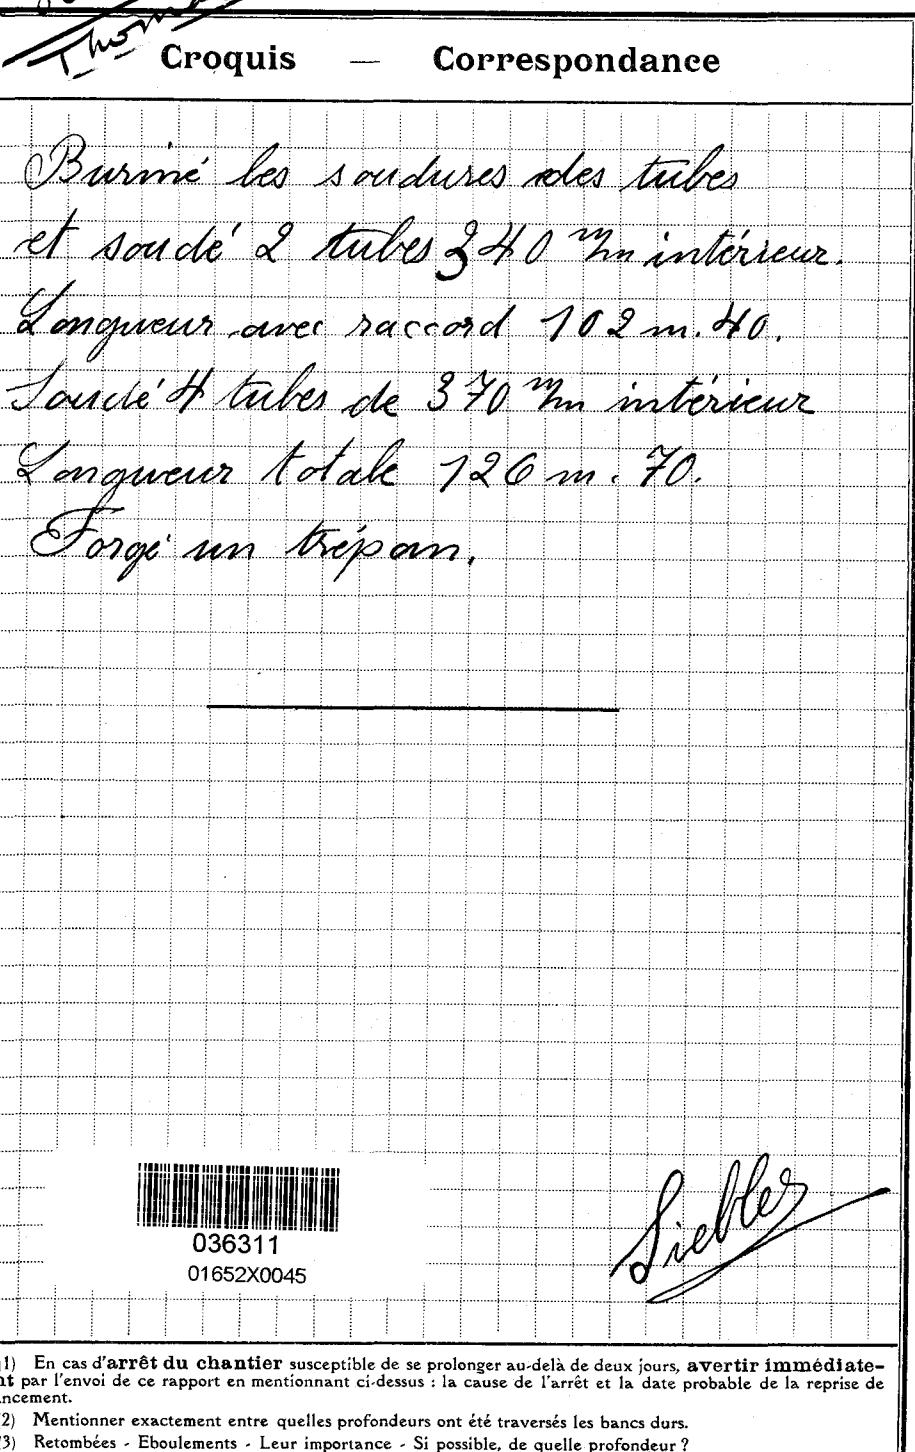 Thomas
Croquis — Correspondance
Buriné les soudures des tubes
et soudé 2 tubes 340 m/m intérieur.
Longueur avec raccord 102 m. 40.
Soudé 4 tubes de 370 m/m intérieur
Longueur totale 126 m. 70.
Forgé un trépan.
036311
01652X0045
Siebler
1) En cas d'arrêt du chantier susceptible de se prolonger au-delà de deux jours, avertir immédiate-
nt par l'envoi de ce rapport en mentionnant ci-dessus : la cause de l'arrêt et la date probable de la reprise de
ncement.
2) Mentionner exactement entre quelles profondeurs ont été traversés les bancs durs.
3) Retombées - Eboulements - Leur importance - Si possible, de quelle profondeur ?